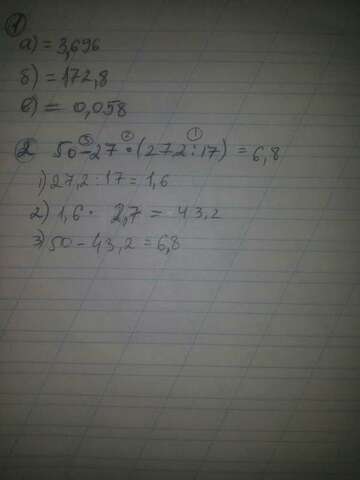 1
а) = 3,696
б) = 172,8
в) = 0,058
2 50 - 27 • (27,2 : 17) = 6,8
1) 27,2 : 17 = 1,6
2) 1,6 • 2,7 = 43,2
3) 50 - 43,2 = 6,8